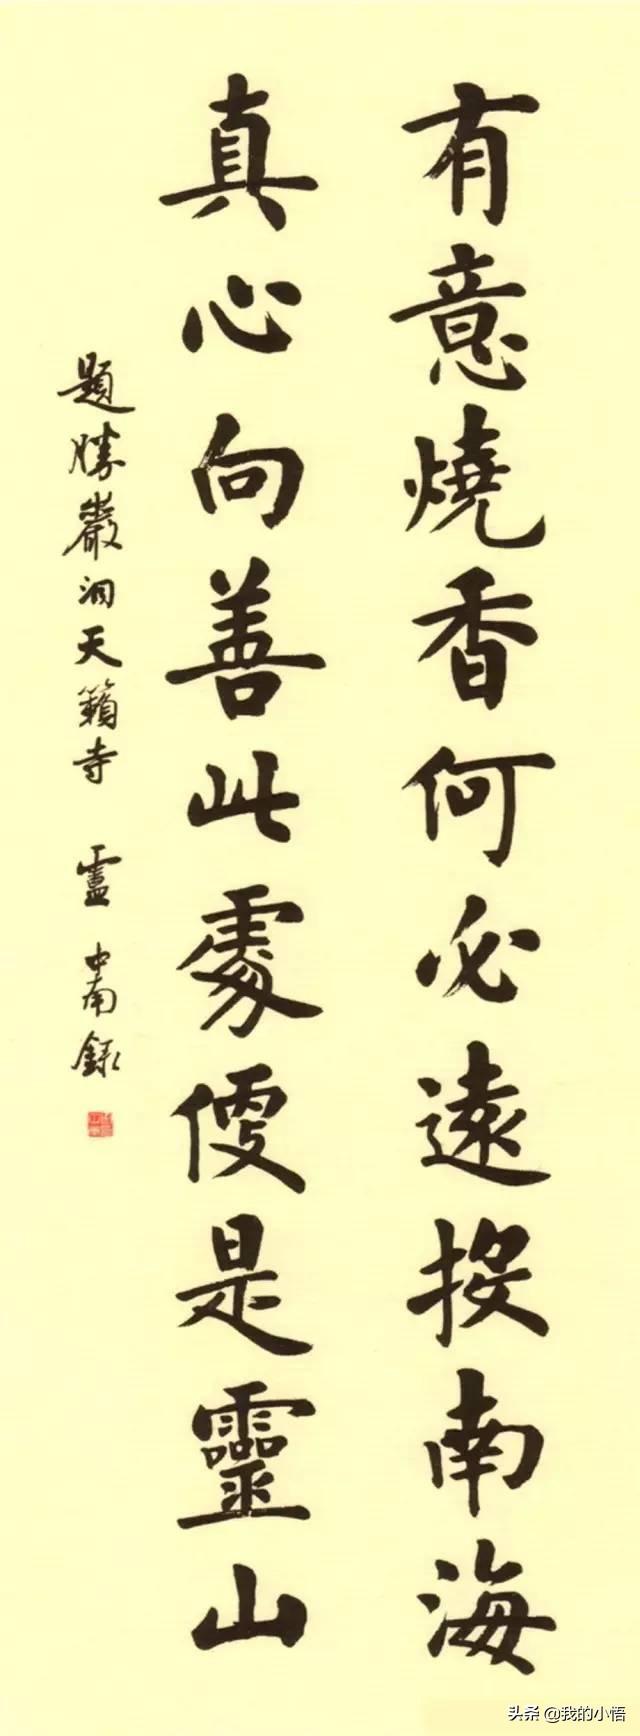 有意燒香何必遠投南海
真心向善此處便是靈山
題勝巖洞天籟寺 盧中南錄
头条 @我的小悟